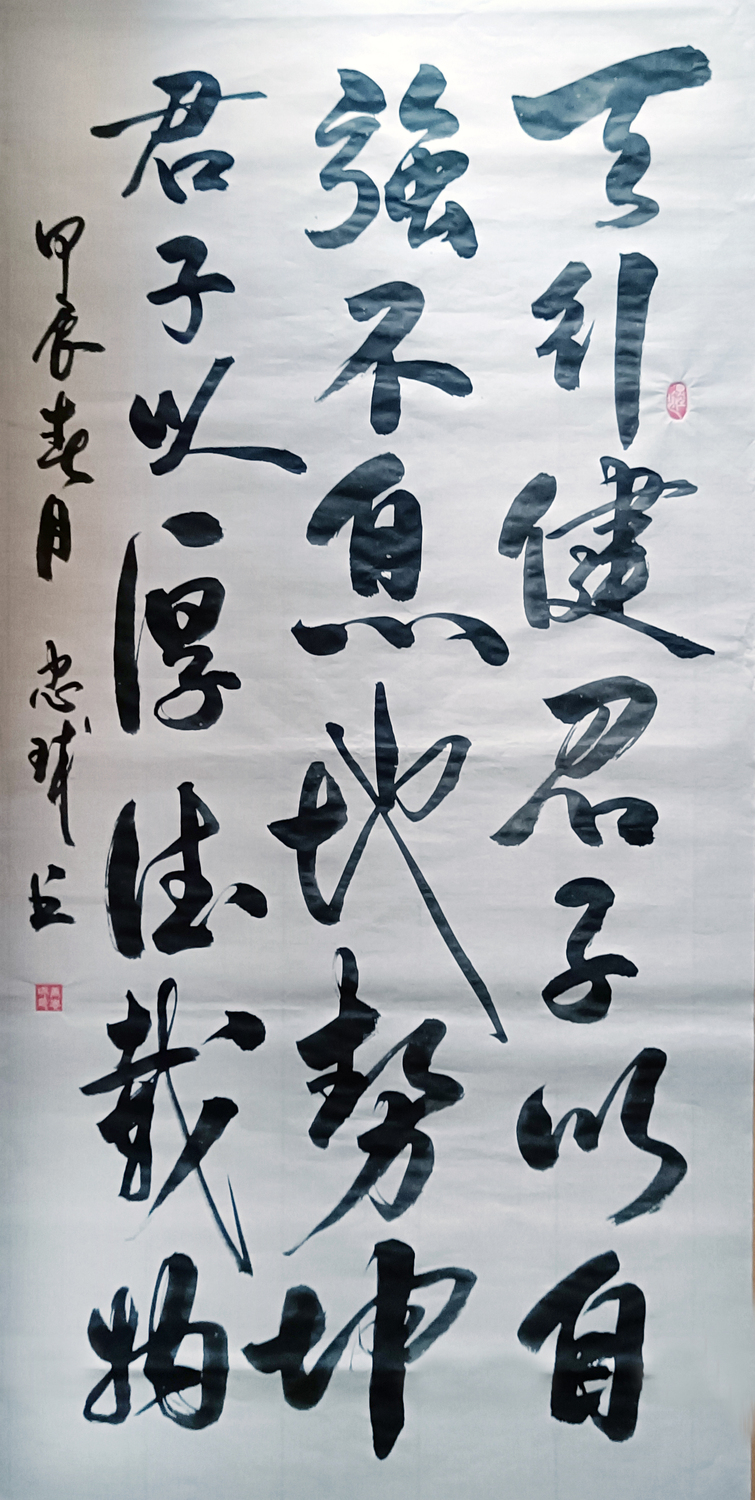 天行健君子以自
強不息地勢坤
君子以厚德載物
甲辰春月 忠琫书